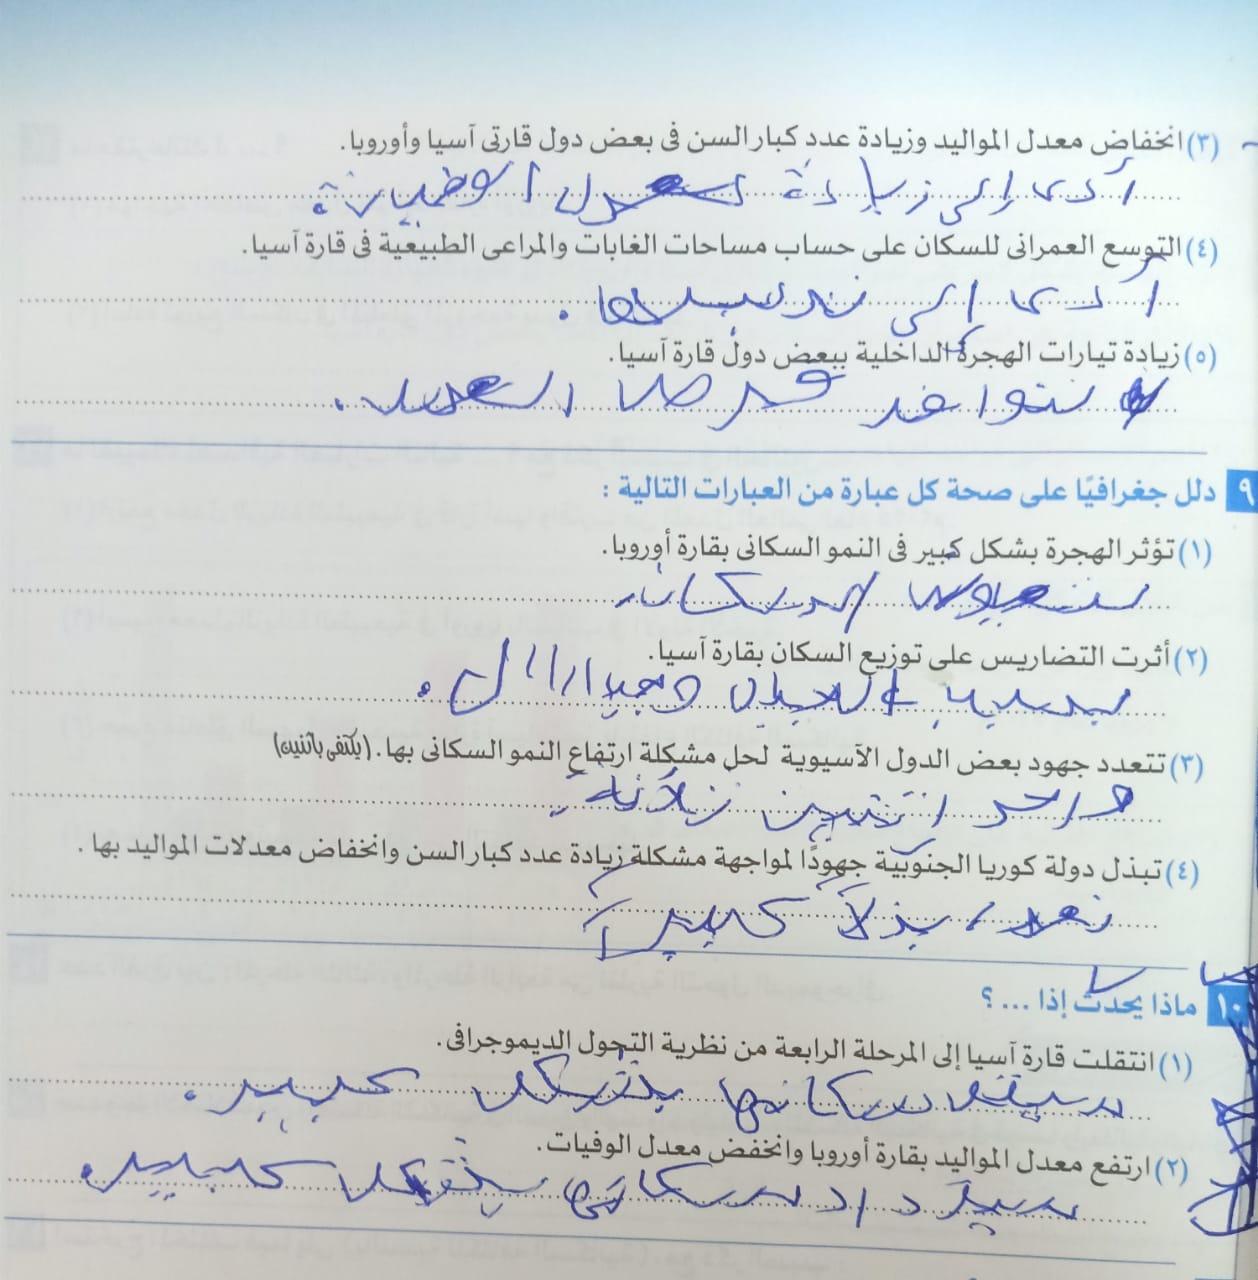 (٣) انخفاض معدل المواليد وزيادة عدد كبار السن فى بعض دول قارتى آسيا وأوروبا.
أدى إلى زيادة معدل الوفيات.
(٤) التوسع العمرانى للسكان على حساب مساحات الغابات والمراعى الطبيعية فى قارة آسيا.
أدى إلى
(٥) زيادة تيارات الهجرة الداخلية ببعض دول قارة آسيا.
توافر فرص العمل.
٩ دلل جغرافيًا على صحة كل عبارة من العبارات التالية :
(١) تؤثر الهجرة بشكل كبير فى النمو السكانى بقارة أوروبا.
السكان
(٢) أثرت التضاريس على توزيع السكان بقارة آسيا.
بسبب الجبال
(٣) تتعدد جهود بعض الدول الآسيوية لحل مشكلة ارتفاع النمو السكانى بها. (يكتفى باثنين)
واحد اتنين تلاتة.
(٤) تبذل دولة كوريا الجنوبية جهودًا لمواجهة مشكلة زيادة عدد كبار السن وانخفاض معدلات المواليد بها.
نعم، بذلاً كبيراً
١٠ ماذا يحدث إذا ... ؟
(١) انتقلت قارة آسيا إلى المرحلة الرابعة من نظرية التحول الديموجرافى.
سيقل سكانها بشكل كبير.
(٢) ارتفع معدل المواليد بقارة أوروبا وانخفض معدل الوفيات.
سيزداد سكانها بشكل كبير.